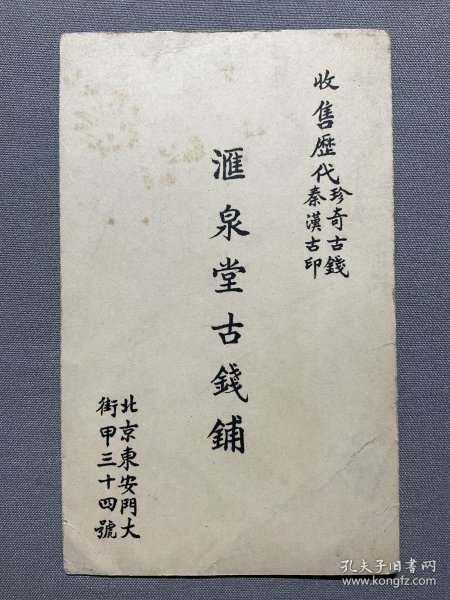 收售歷代珍奇古錢
秦漢古印
滙泉堂古錢鋪
北京東安門大
街甲三十四號
孔夫子旧书网
www.kongfz.com